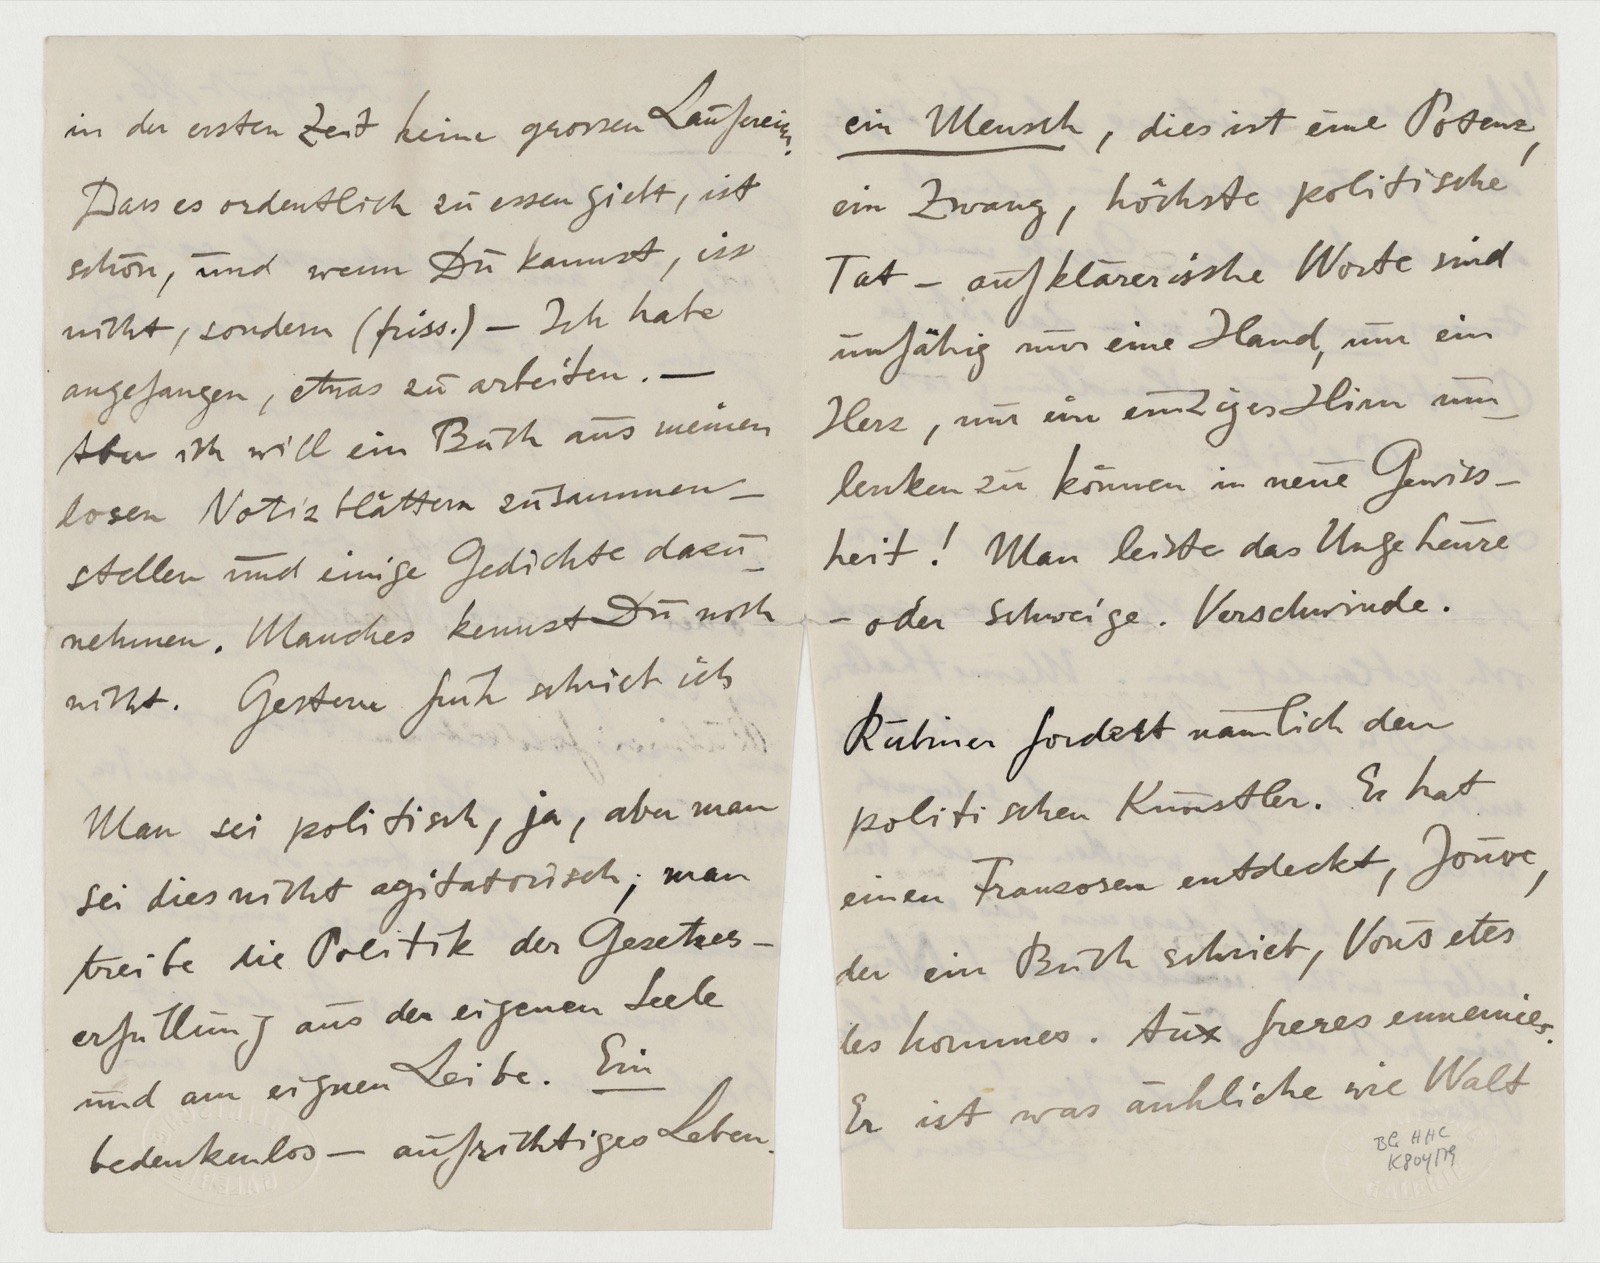 in der ersten Zeit keine grossen Laufereien.
Dass es ordentlich zu essen giebt, ist
schön, und wenn Du kannst, iss
nicht, sondern (friss.) — Ich habe
angefangen, etwas zu arbeiten. —
Aber ich will ein Buch aus meinen
losen Notizblättern zusammen-
stellen und einige Gedichte dazu-
nehmen. Manches kennst Du noch
nicht. Gestern früh schrieb ich
Man sei politisch, ja, aber man
sei dies nicht agitatorisch; man
treibe die Politik der Gesetzes-
erfüllung aus der eigenen Seele
und am eignen Leibe. Ein
bedenkenlos — aufrichtiges Leben.
ein Mensch, dies ist eine Potenz,
ein Zwang, höchste politische
Tat — aufklärerische Worte sind
unfähig nur eine Hand, nur ein
Herz, nur ein einziges Hirn um-
lenken zu können in neue Gewiss-
heit! Man leiste das Ungeheure
- oder schweige. Verschwinde.
Rubiner fordert nämlich den
politischen Künstler. Er hat
einen Franzosen entdeckt, Jouve,
der ein Buch schrieb, Vous etes
des hommes. Aux freres ennemies.
Er ist was ähnliche wie Walt
BG HHC
K804/79